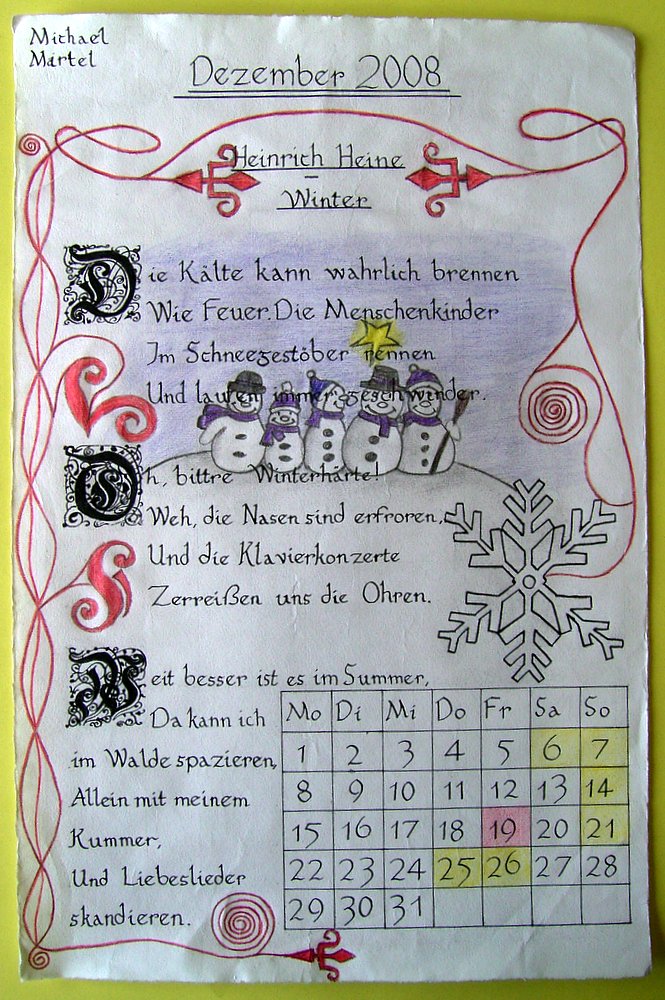 Michael
Martel
Dezember 2008
Heinrich Heine
–
Winter
Die Kälte kann wahrlich brennen
Wie Feuer. Die Menschenkinder
Im Schneegestöber rennen
Und laufen immer geschwinder.
Oh, bittre Winterhärte!
Weh, die Nasen sind erfroren,
Und die Klavierkonzerte
Zerreißen uns die Ohren.
Weit besser ist es im Summer,
Da kann ich
im Walde spazieren,
Allein mit meinem
Kummer,
Und Liebeslieder
skandieren.
Mo Di Mi Do Fr Sa So
1 2 3 4 5 6 7
8 9 10 11 12 13 14
15 16 17 18 19 20 21
22 23 24 25 26 27 28
29 30 31